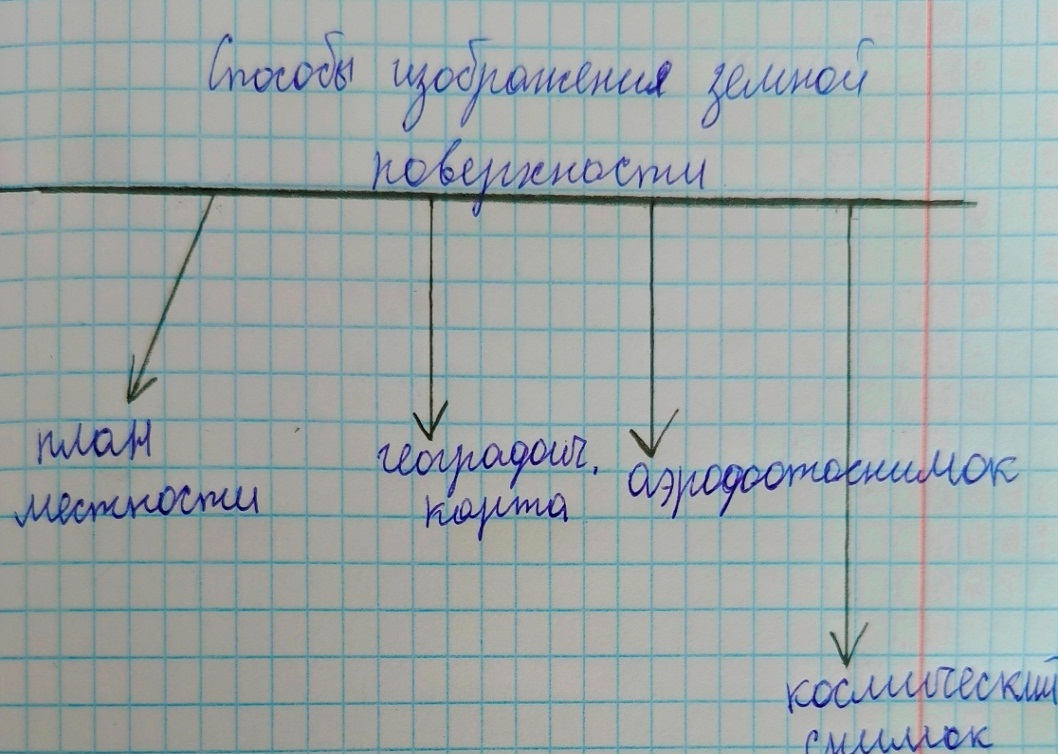 Способы изображения земной
поверхности
план
местности
географич.
карта
аэрофотоснимок
космический
снимок